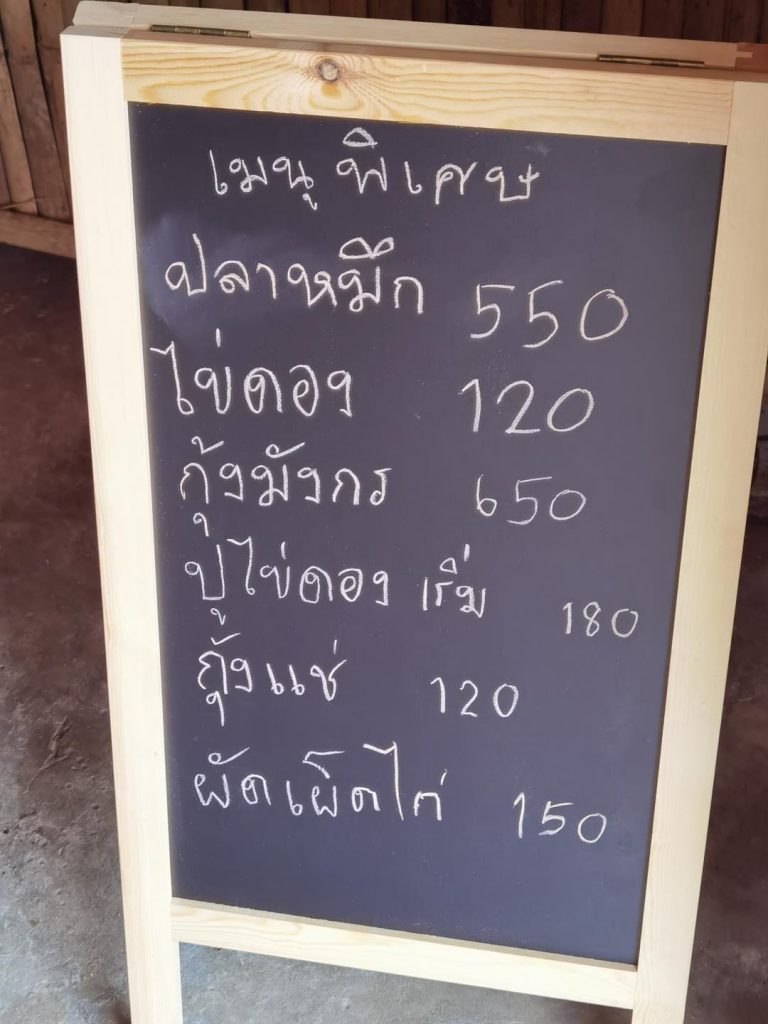 เมนูพิเศษ
ปลาหมึก 550
ไข่ดอง 120
กุ้งมังกร 650
ปูไข่ดอง เริ่ม 180
กุ้งแช่ 120
ผัดเผ็ดไก่ 150